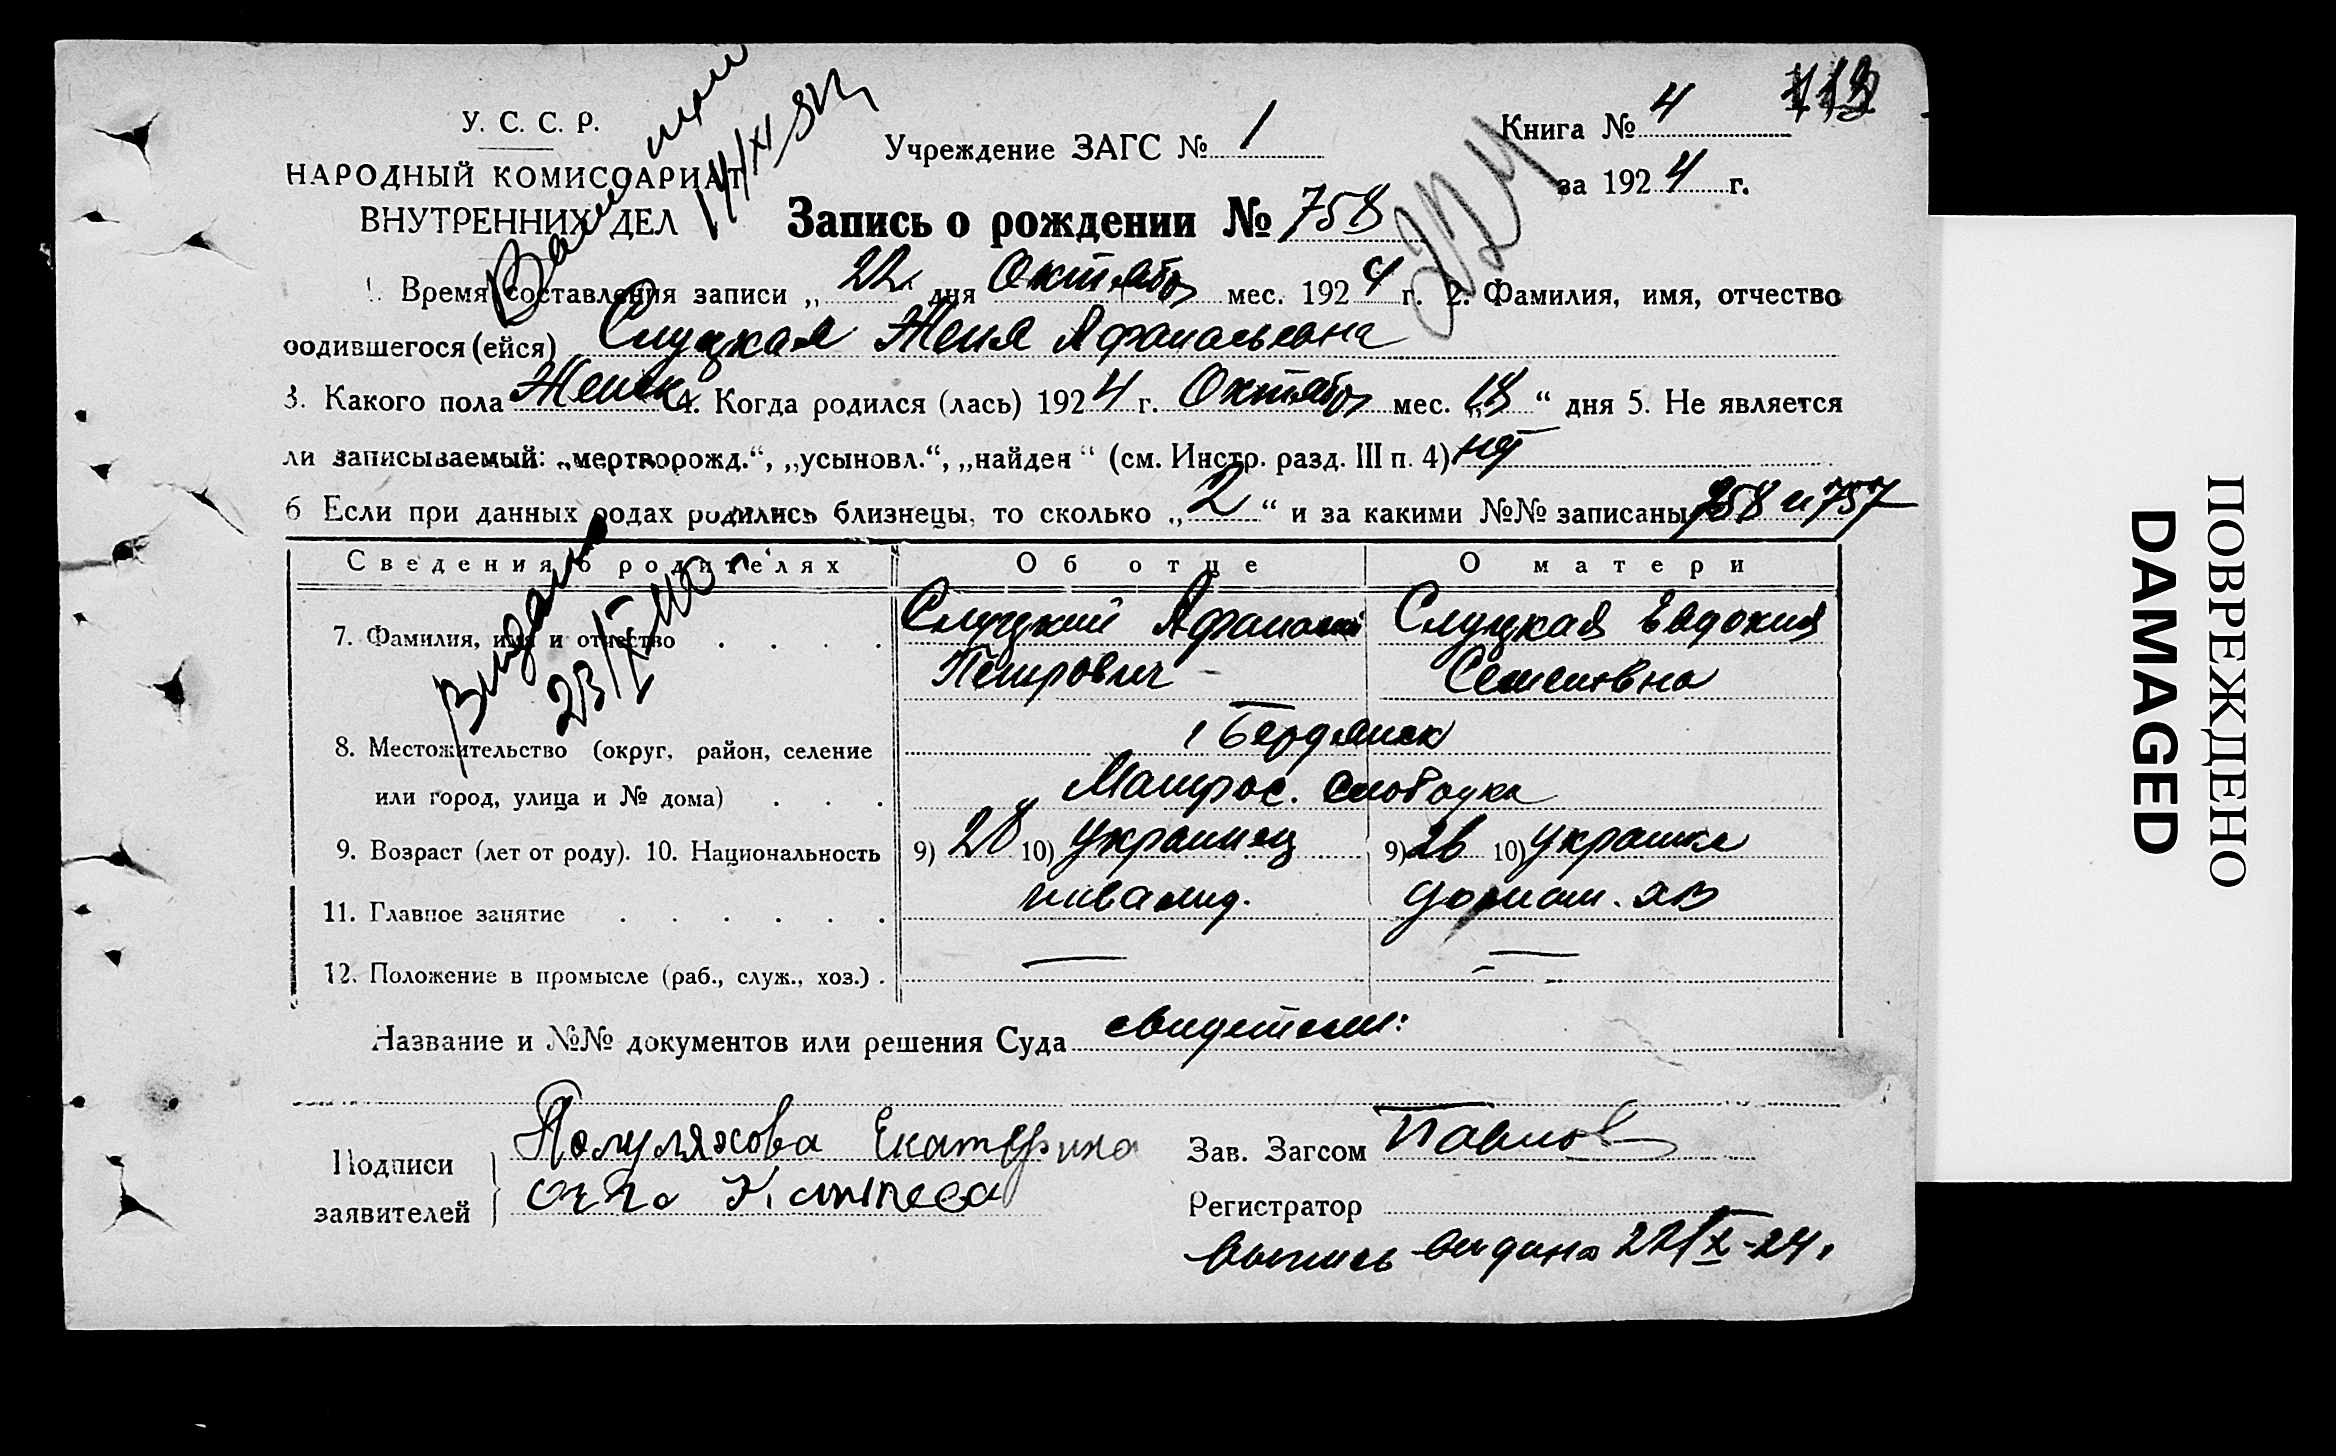 У. С. С. Р.
НАРОДНЫЙ КОМИССАРИАТ
ВНУТРЕННИХ ДЕЛ
Учреждение ЗАГС № 1
Книга № 4
за 1924 г.
Запись о рождении № 758
1. Время составления записи „22" дня Октября мес. 1924 г. 2. Фамилия, имя, отчество
родившегося (ейся) Слуцкая Женя Афанасьевна
3. Какого пола Женск. 4. Когда родился (лась) 1924 г. Октября мес. „18" дня 5. Не является
ли записываемый: „мертворожд.", „усыновл.", „найден" (см. Инстр. разд. III п. 4) нет
6 Если при данных родах родились близнецы, то сколько „2" и за какими №№ записаны 758 и 757
Сведения о родителях Об отце О матери
7. Фамилия, имя и отчество . . . . Слуцкий Афанасий Слуцкая Евдокия
Петрович Семеновна
8. Местожительство (округ, район, селение г Бердянск
или город, улица и № дома) . . . Матрос. слободка
9. Возраст (лет от роду). 10. Национальность 9) 28 10) Украинец 9) 26 10) Украинка
11. Главное занятие . . . . . . инвалид. домаш. хоз
12. Положение в промысле (раб., служ., хоз.) . — —
Название и №№ документов или решения Суда свидетели:
Подписи
заявителей
Екатерина
Зав. Загсом Павлов
Регистратор
Выпись выдана 22/X-24 г.
ПОВРЕЖДЕНО
DAMAGED